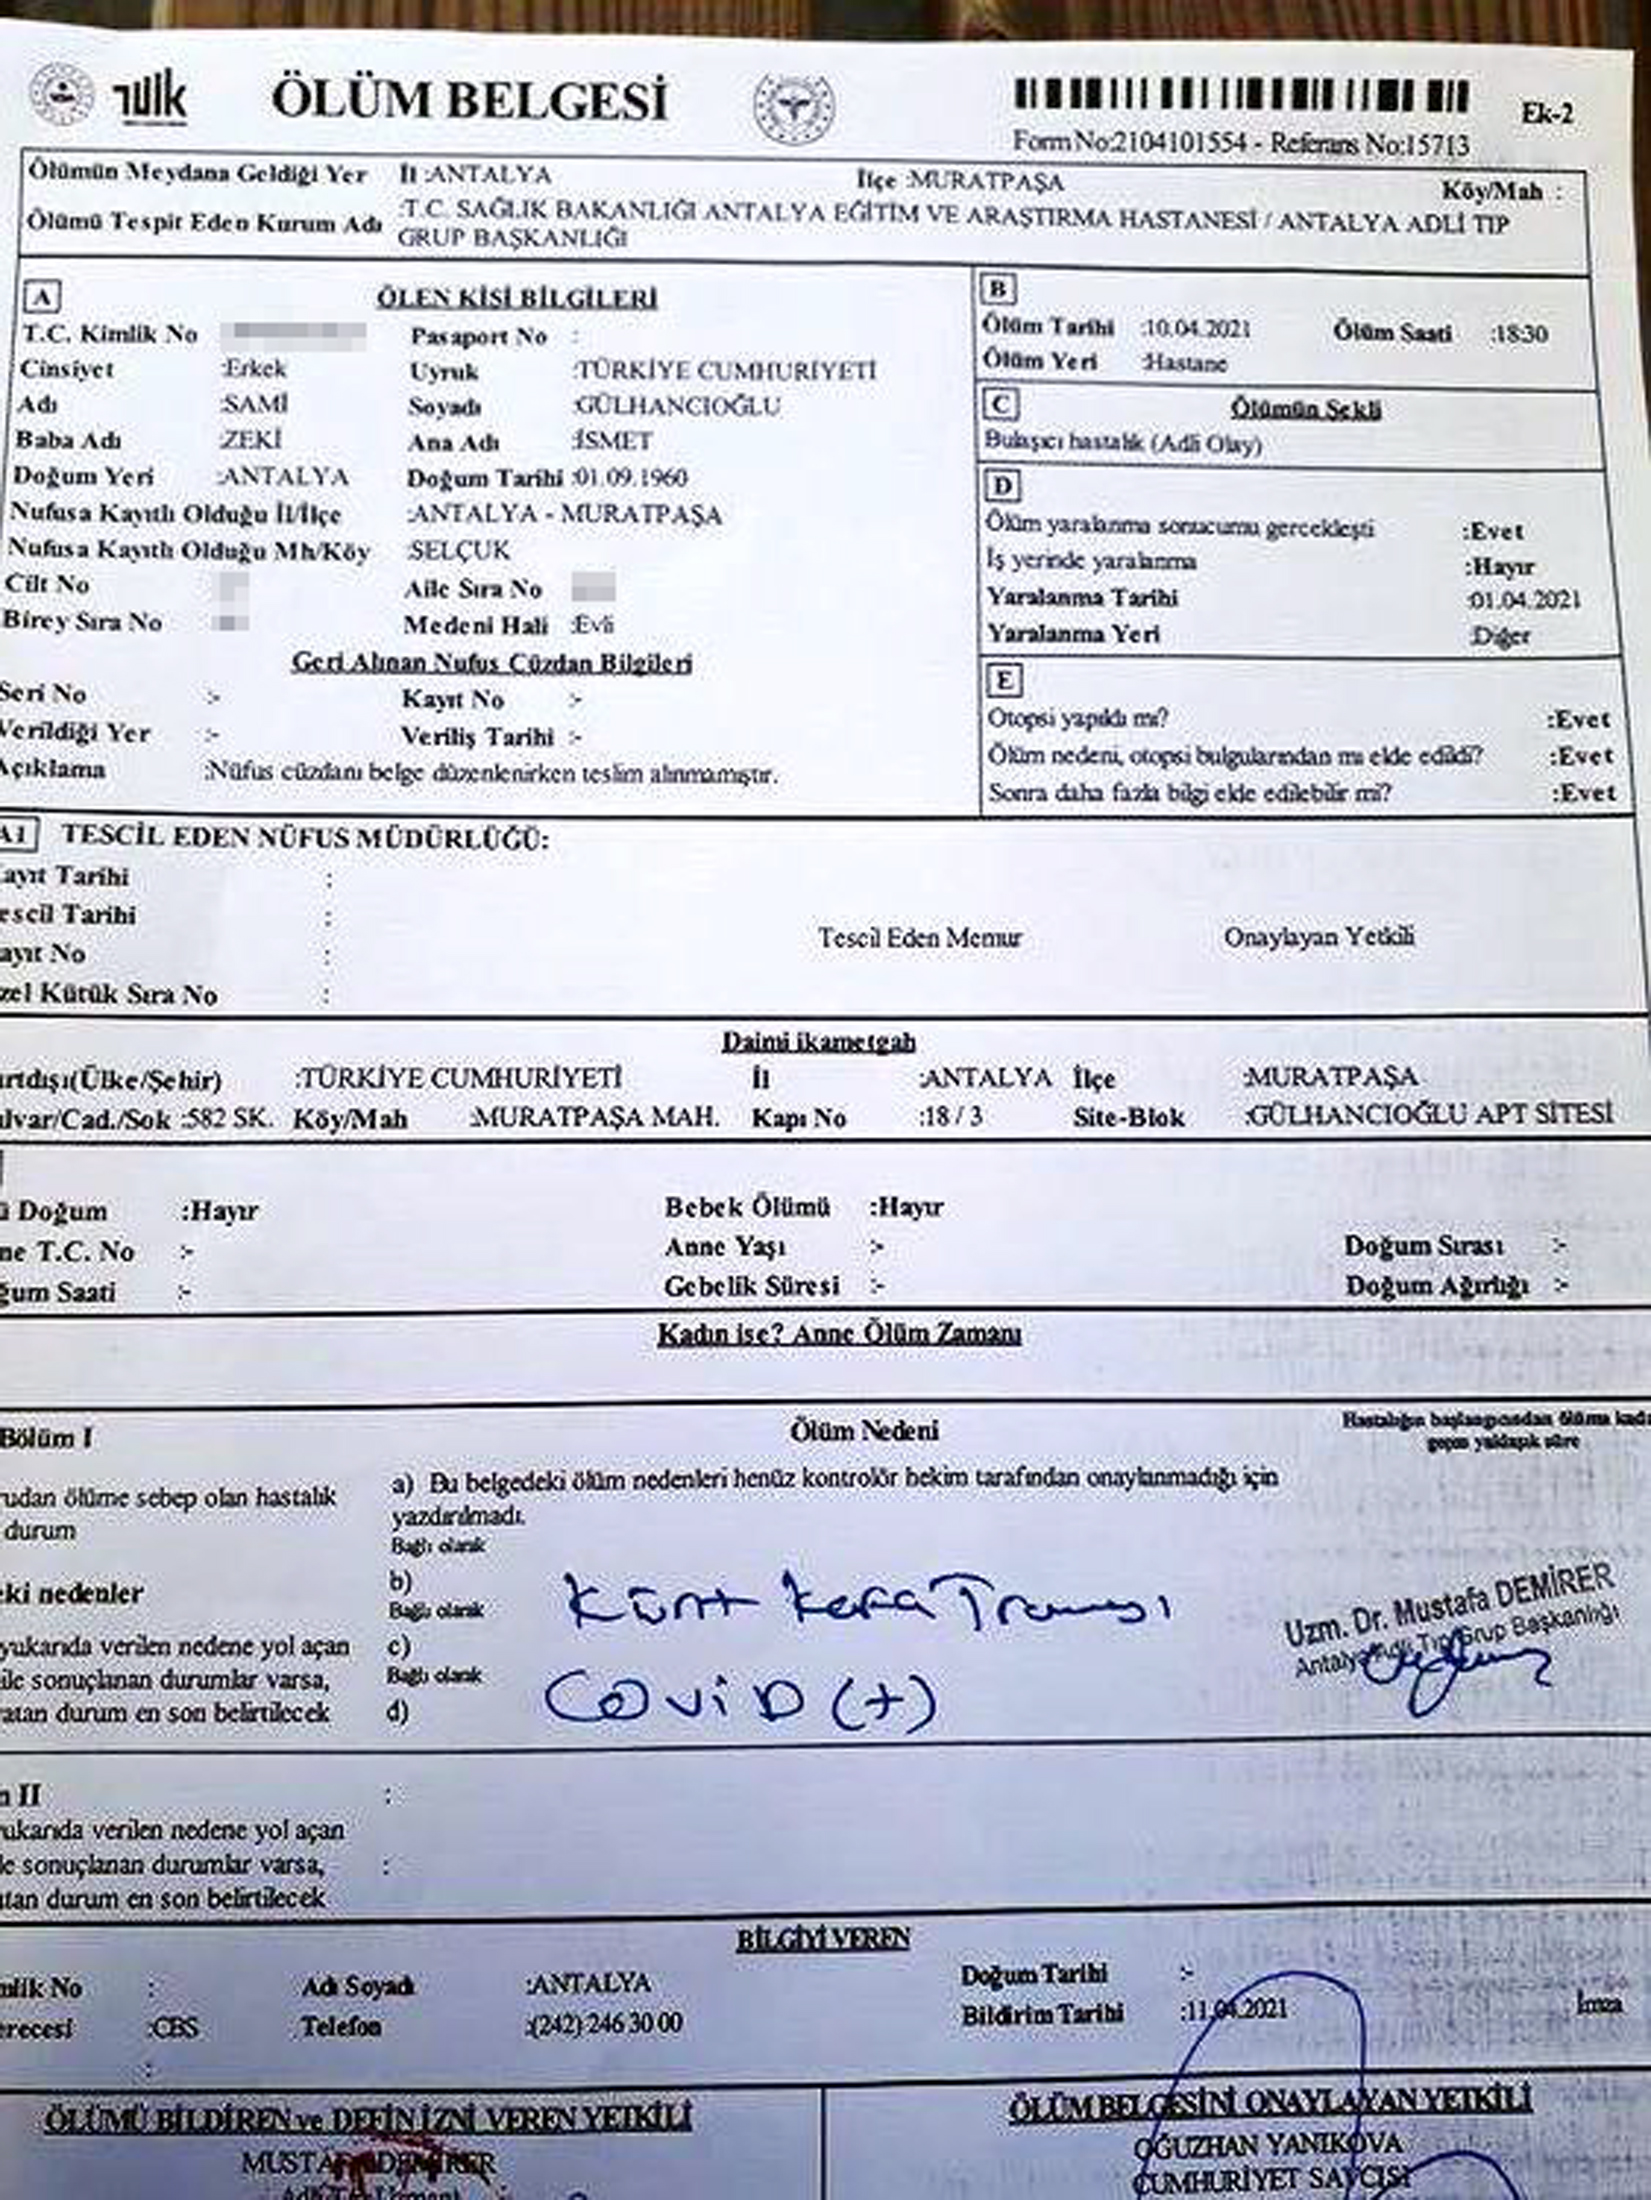 TUİK ÖLÜM BELGESİ Ek-2
FormNo:2104101554 - Referans No:15713
Ölümün Meydana Geldiği Yer İl :ANTALYA İlçe :MURATPAŞA Köy/Mah :
Ölümü Tespit Eden Kurum Adı :T.C. SAĞLIK BAKANLIĞI ANTALYA EĞİTİM VE ARAŞTIRMA HASTANESİ / ANTALYA ADLİ TIP
GRUP BAŞKANLIĞI
A ÖLEN KİŞİ BİLGİLERİ
T.C. Kimlik No Pasaport No :
Cinsiyet :Erkek Uyruk :TÜRKİYE CUMHURİYETİ
Adı :SAMİ Soyadı :GÜLHANCIOĞLU
Baba Adı :ZEKİ Ana Adı :İSMET
Doğum Yeri :ANTALYA Doğum Tarihi :01.09.1960
Nufusa Kayıtlı Olduğu İl/İlçe :ANTALYA - MURATPAŞA
Nufusa Kayıtlı Olduğu Mh/Köy :SELÇUK
Cilt No Aile Sıra No
Birey Sıra No Medeni Hali :Evli
Geri Alınan Nufus Cüzdan Bilgileri
Seri No :- Kayıt No :-
Verildiği Yer :- Veriliş Tarihi :-
Açıklama :Nüfus cüzdanı belge düzenlenirken teslim alınmamıştır.
B
Ölüm Tarihi :10.04.2021 Ölüm Saati :18:30
Ölüm Yeri :Hastane
C Ölümün Şekli
Bulaşıcı hastalık (Adli Olay)
D
Ölüm yaralanma sonucumu gerceklesti :Evet
İş yerinde yaralanma :Hayır
Yaralanma Tarihi :01.04.2021
Yaralanma Yeri :Diğer
E
Otopsi yapıldı mı? :Evet
Ölüm nedeni, otopsi bulgularından mı elde edildi? :Evet
Sonra daha fazla bilgi elde edilebilir mi? :Evet
A1 TESCİL EDEN NÜFUS MÜDÜRLÜĞÜ:
ayıt Tarihi :
escil Tarihi :
ayıt No :
zel Kütük Sıra No :
Tescil Eden Memur Onaylayan Yetkili
Daimi ikametgah
urtdışı(Ülke/Şehir) :TÜRKİYE CUMHURİYETİ İl :ANTALYA İlçe :MURATPAŞA
ulvar/Cad./Sok :582 SK. Köy/Mah :MURATPAŞA MAH. Kapı No :18 / 3 Site-Blok :GÜLHANCIOĞLU APT SİTESİ
ü Doğum :Hayır Bebek Ölümü :Hayır
ne T.C. No :- Anne Yaşı :- Doğum Sırası :-
ğum Saati :- Gebelik Süresi :- Doğum Ağırlığı :-
Kadın ise? Anne Ölüm Zamanı
Bölüm I Ölüm Nedeni Hastalığın başlangıcından ölüme kada
geçen yaklaşık süre
rudan ölüme sebep olan hastalık
durum
a) Bu belgedeki ölüm nedenleri henüz kontrolör hekim tarafından onaylanmadığı için
yazdırılmadı.
Bağlı olarak
eki nedenler b) Künt kafa Travması
Bağlı olarak
yukarıda verilen nedene yol açan c)
ile sonuçlanan durumlar varsa, Bağlı olarak
atan durum en son belirtilecek d) COViD (+)
Uzm. Dr. Mustafa DEMİRER
Antalya Adli Tıp Grup Başkanlığı
n II :
ukarıda verilen nedene yol açan
le sonuçlanan durumlar varsa, :
atan durum en son belirtilecek
BİLGİYİ VEREN
mlik No : Adı Soyadı :ANTALYA Doğum Tarihi :-
erecesi :CBS Telefon :(242) 246 30 00 Bildirim Tarihi :11.04.2021 İmza
:
ÖLÜMÜ BİLDİREN ve DEFİN İZNİ VEREN YETKİLİ
MUSTAFA DEMİRER
Adli Tıp Uzmanı
ÖLÜM BELGESİNİ ONAYLAYAN YETKİLİ
OĞUZHAN YANIKOVA
CUMHURİYET SAVCISI